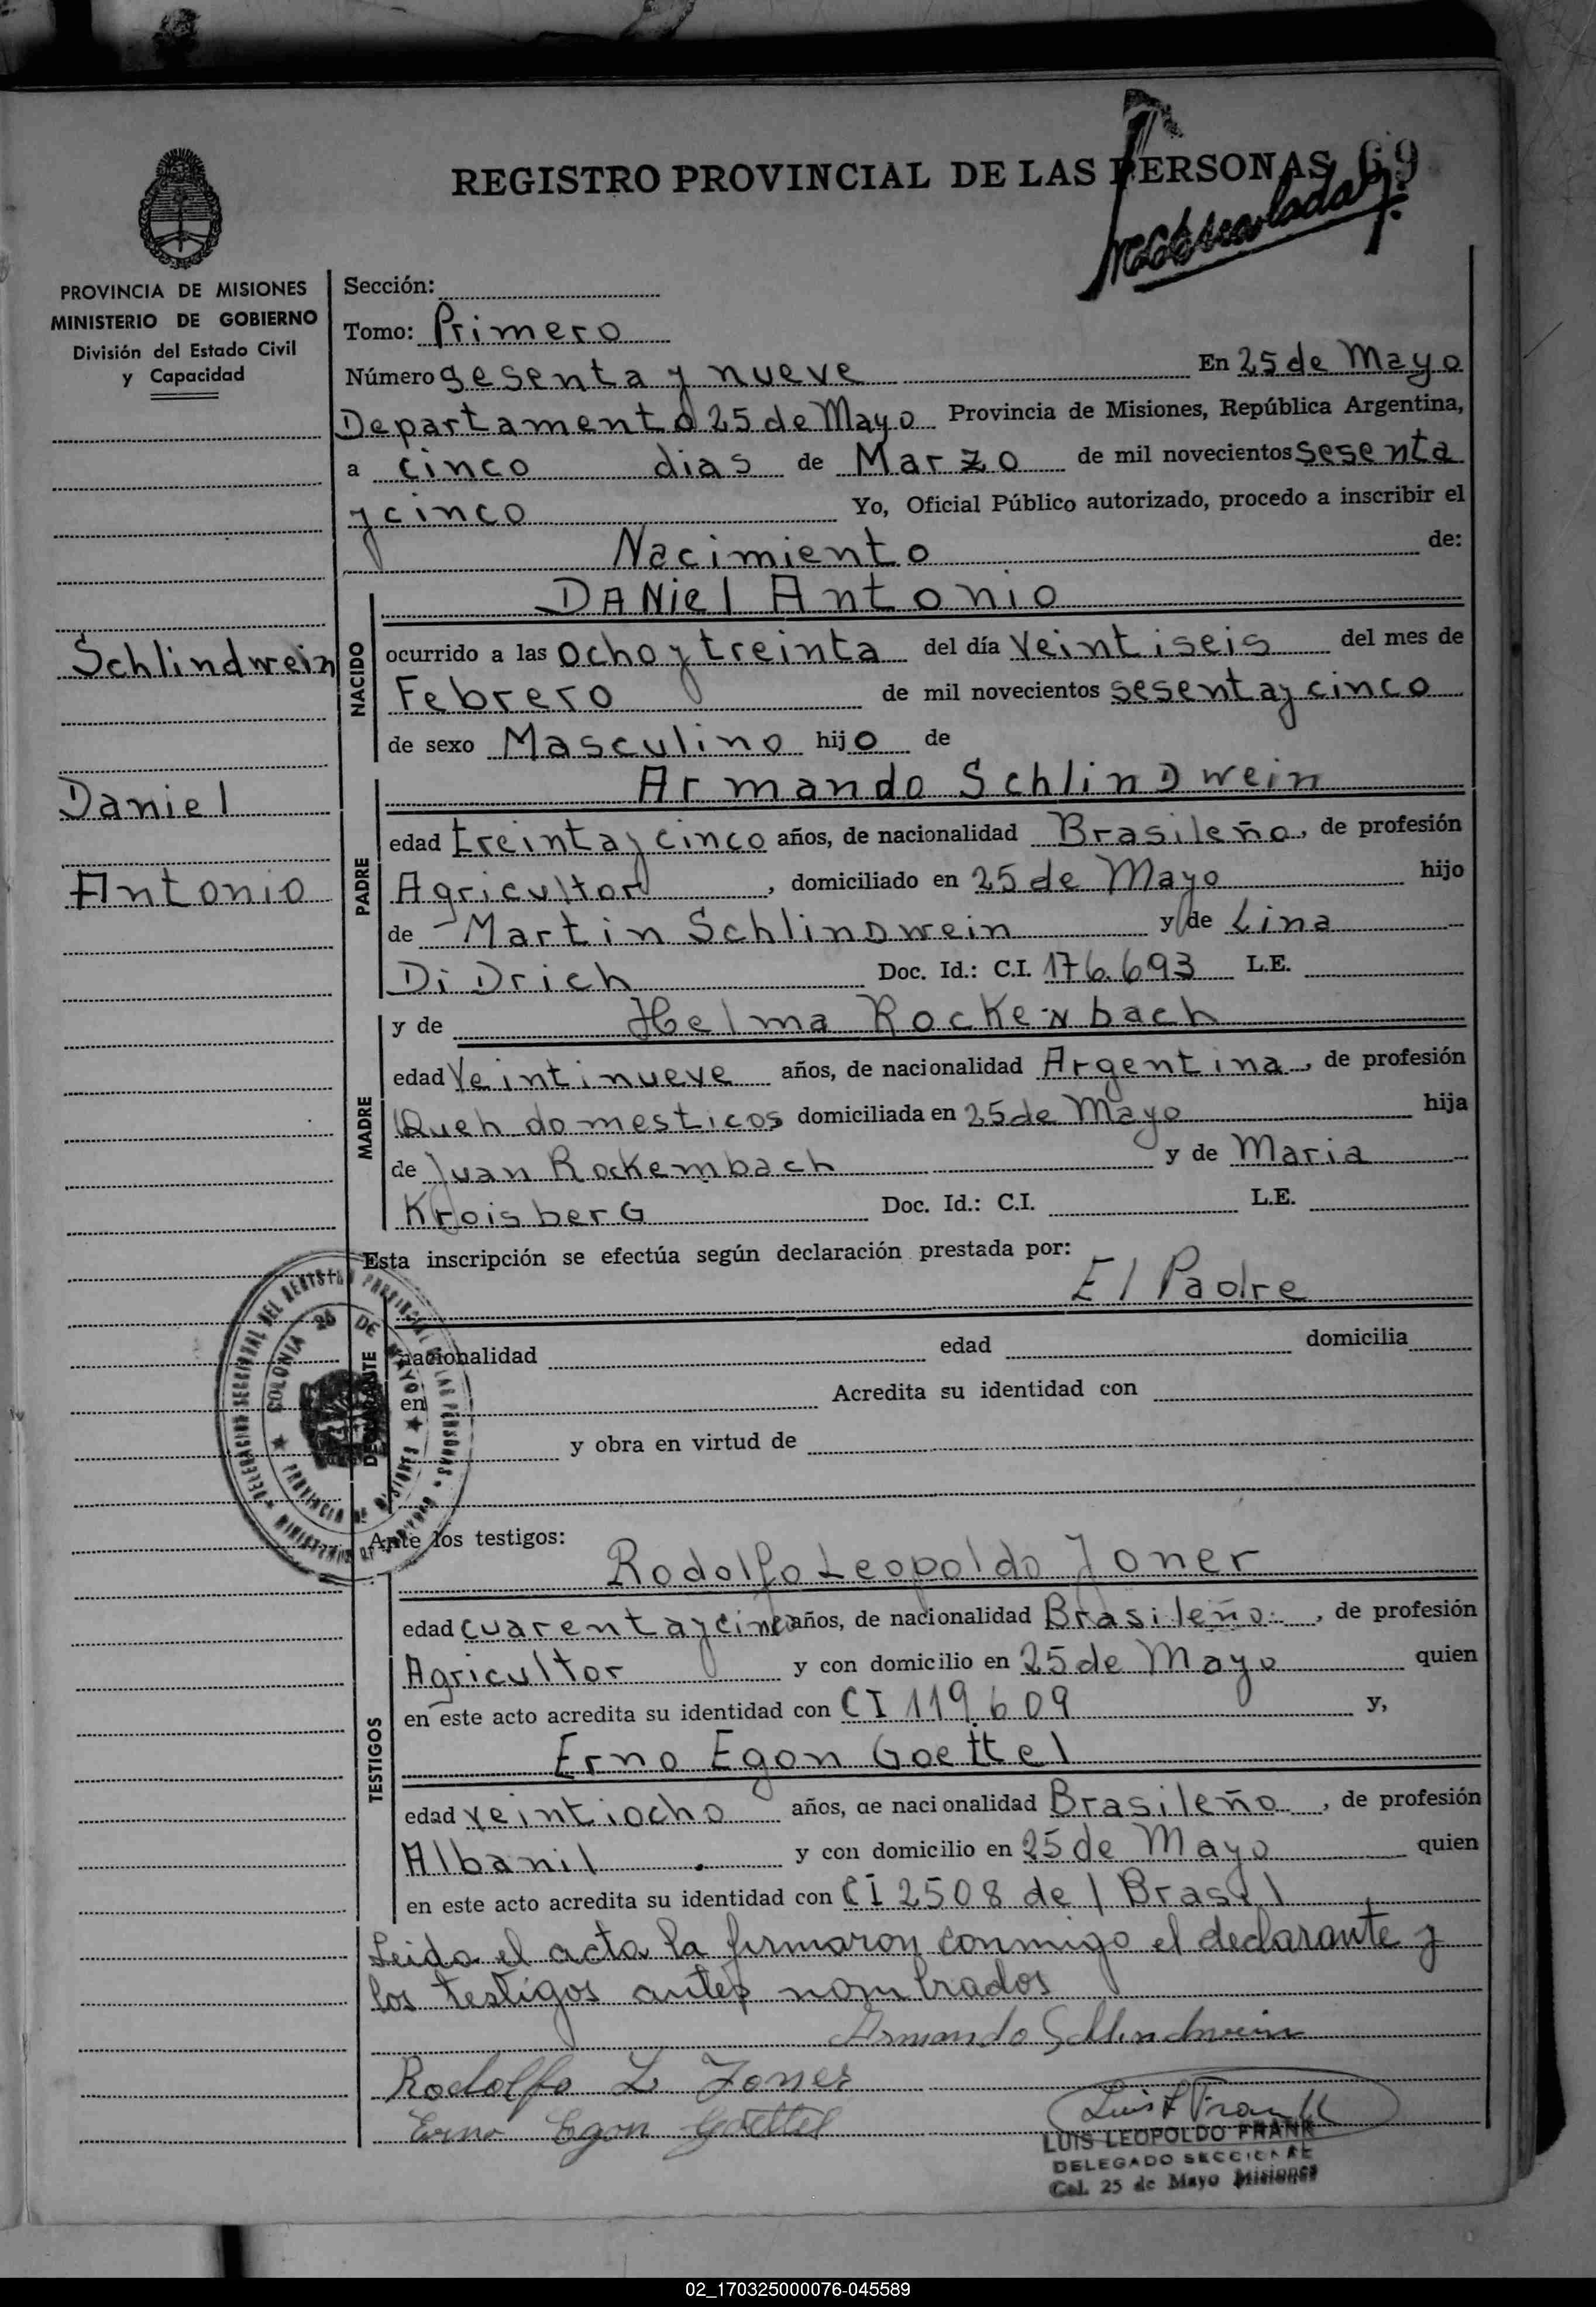 REGISTRO PROVINCIAL DE LAS PERSONAS 69
PROVINCIA DE MISIONES
MINISTERIO DE GOBIERNO
División del Estado Civil
y Capacidad
Schlindwein
Daniel
Antonio
Sección:
Tomo: Primero
Número Sesenta y nueve En 25 de Mayo
Departamento 25 de Mayo Provincia de Misiones, República Argentina,
a cinco dias de Marzo de mil novecientos sesenta
y cinco Yo, Oficial Público autorizado, procedo a inscribir el
Nacimiento de:
NACIDO
DANiel Antonio
ocurrido a las ocho y treinta del día Veintiseis del mes de
Febrero de mil novecientos sesenta y cinco
de sexo Masculino hijo de
PADRE
Armando SchlinDwein
edad treinta y cinco años, de nacionalidad Brasileño, de profesión
Agricultor, domiciliado en 25 de Mayo hijo
de Martin SchlinDwein y de Lina
DiDrich Doc. Id.: C.I. 176.693 L.E.
MADRE
y de Helma Rockenbach
edad Veintinueve años, de nacionalidad Argentina, de profesión
Queh domesticos domiciliada en 25 de Mayo hija
de Juan Rockembach y de Maria
KroisberG Doc. Id.: C.I. L.E.
Esta inscripción se efectúa según declaración prestada por:
El Padre
DECLARANTE
nacionalidad edad domicilia
en Acredita su identidad con
y obra en virtud de
COLONIA 25 DE MAYO
PROVINCIA DE MISIONES
Ante los testigos:
TESTIGOS
Rodolfo Leopoldo Joner
edad cuarenta y cinco años, de nacionalidad Brasileño, de profesión
Agricultor y con domicilio en 25 de Mayo quien
en este acto acredita su identidad con CI 119.609 y,
Erno Egon Goettel
edad veintiocho años, de nacionalidad Brasileño, de profesión
Albanil y con domicilio en 25 de Mayo quien
en este acto acredita su identidad con CI 2508 del Brasil
Leida el acta la firmaron conmigo el declarante y
los testigos antes nombrados
Armando Schlindwein
Rodolfo L Joner
Erno Egon Goettel
Luis L Frank
LUIS LEOPOLDO FRANK
DELEGADO SECCIONAL
Col. 25 de Mayo Misiones
02_170325000076-045589